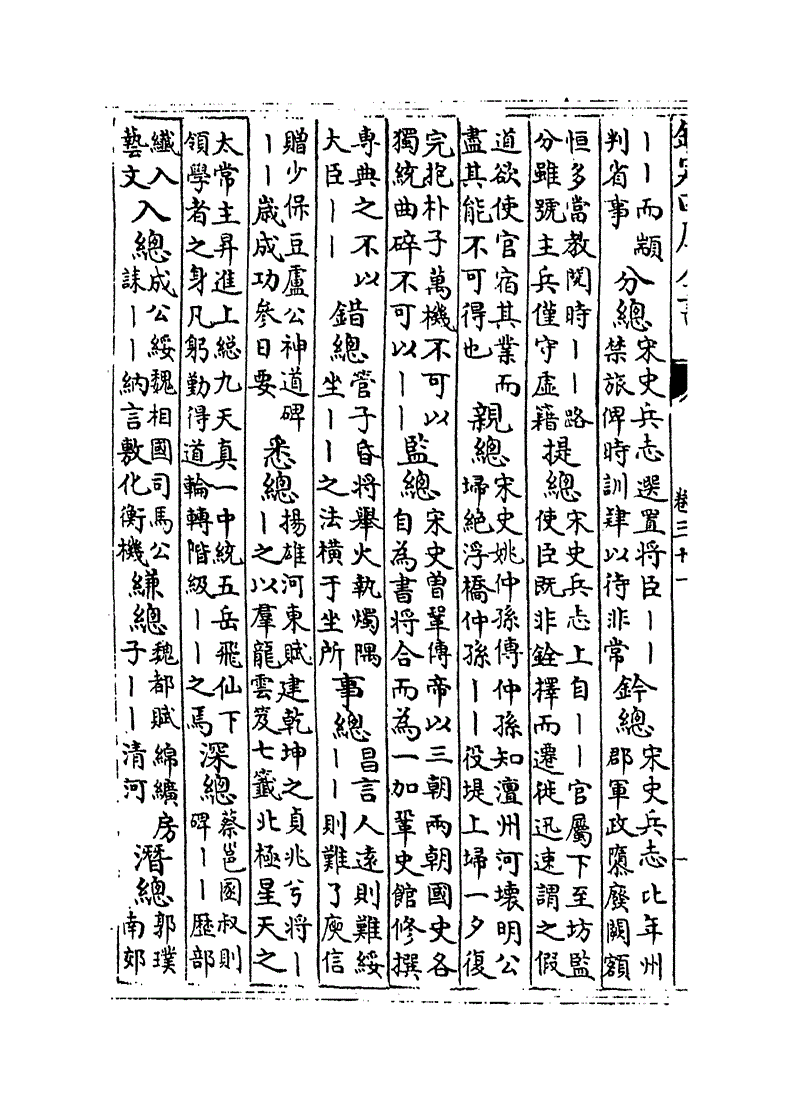 欽定四庫全書
卷三十一
——而顓判省事 分總 宋史兵志選置將臣——禁旅俾時訓肄以待非常 鈐總 宋史兵志比年州郡軍政隳廢闕額
恒多當教閱時——路分雖號主兵僅守虛籍 提總 宋史兵志上自——官屬下至坊監使臣既非銓擇而遷徙迅速謂之假
道欲使官宿其業而盡其能不可得也 親總 宋史姚仲孫傳仲孫知澶州河壞明公埽絕浮橋仲孫——役堤上埽一夕復
完抱朴子萬機不可以獨統曲碎不可以—— 監總 宋史曾鞏傳帝以三朝兩朝國史各自為書將合而為一加鞏史館修撰
專典之不以大臣—— 錯總 管子昏將舉火執燭隅坐——之法橫于坐所 事總 昌言人遠則難綏——則難了庾信
贈少保豆盧公神道碑——歲成功參日要 悉總 揚雄河東賦建乾坤之貞兆兮將——之以羣龍雲笈七籤北極星天之
太常主昇進上總九天真一中統五岳飛仙下領學者之身凡躬勤得道輪轉階級——之馬 深總 蔡邕圂叔則碑——歷部
纖入藝文 入總 成公綏魏相國司馬公誄——納言敷化衡機 縑總 魏都賦綿纊房子——清河 潛總 郭璞南郊